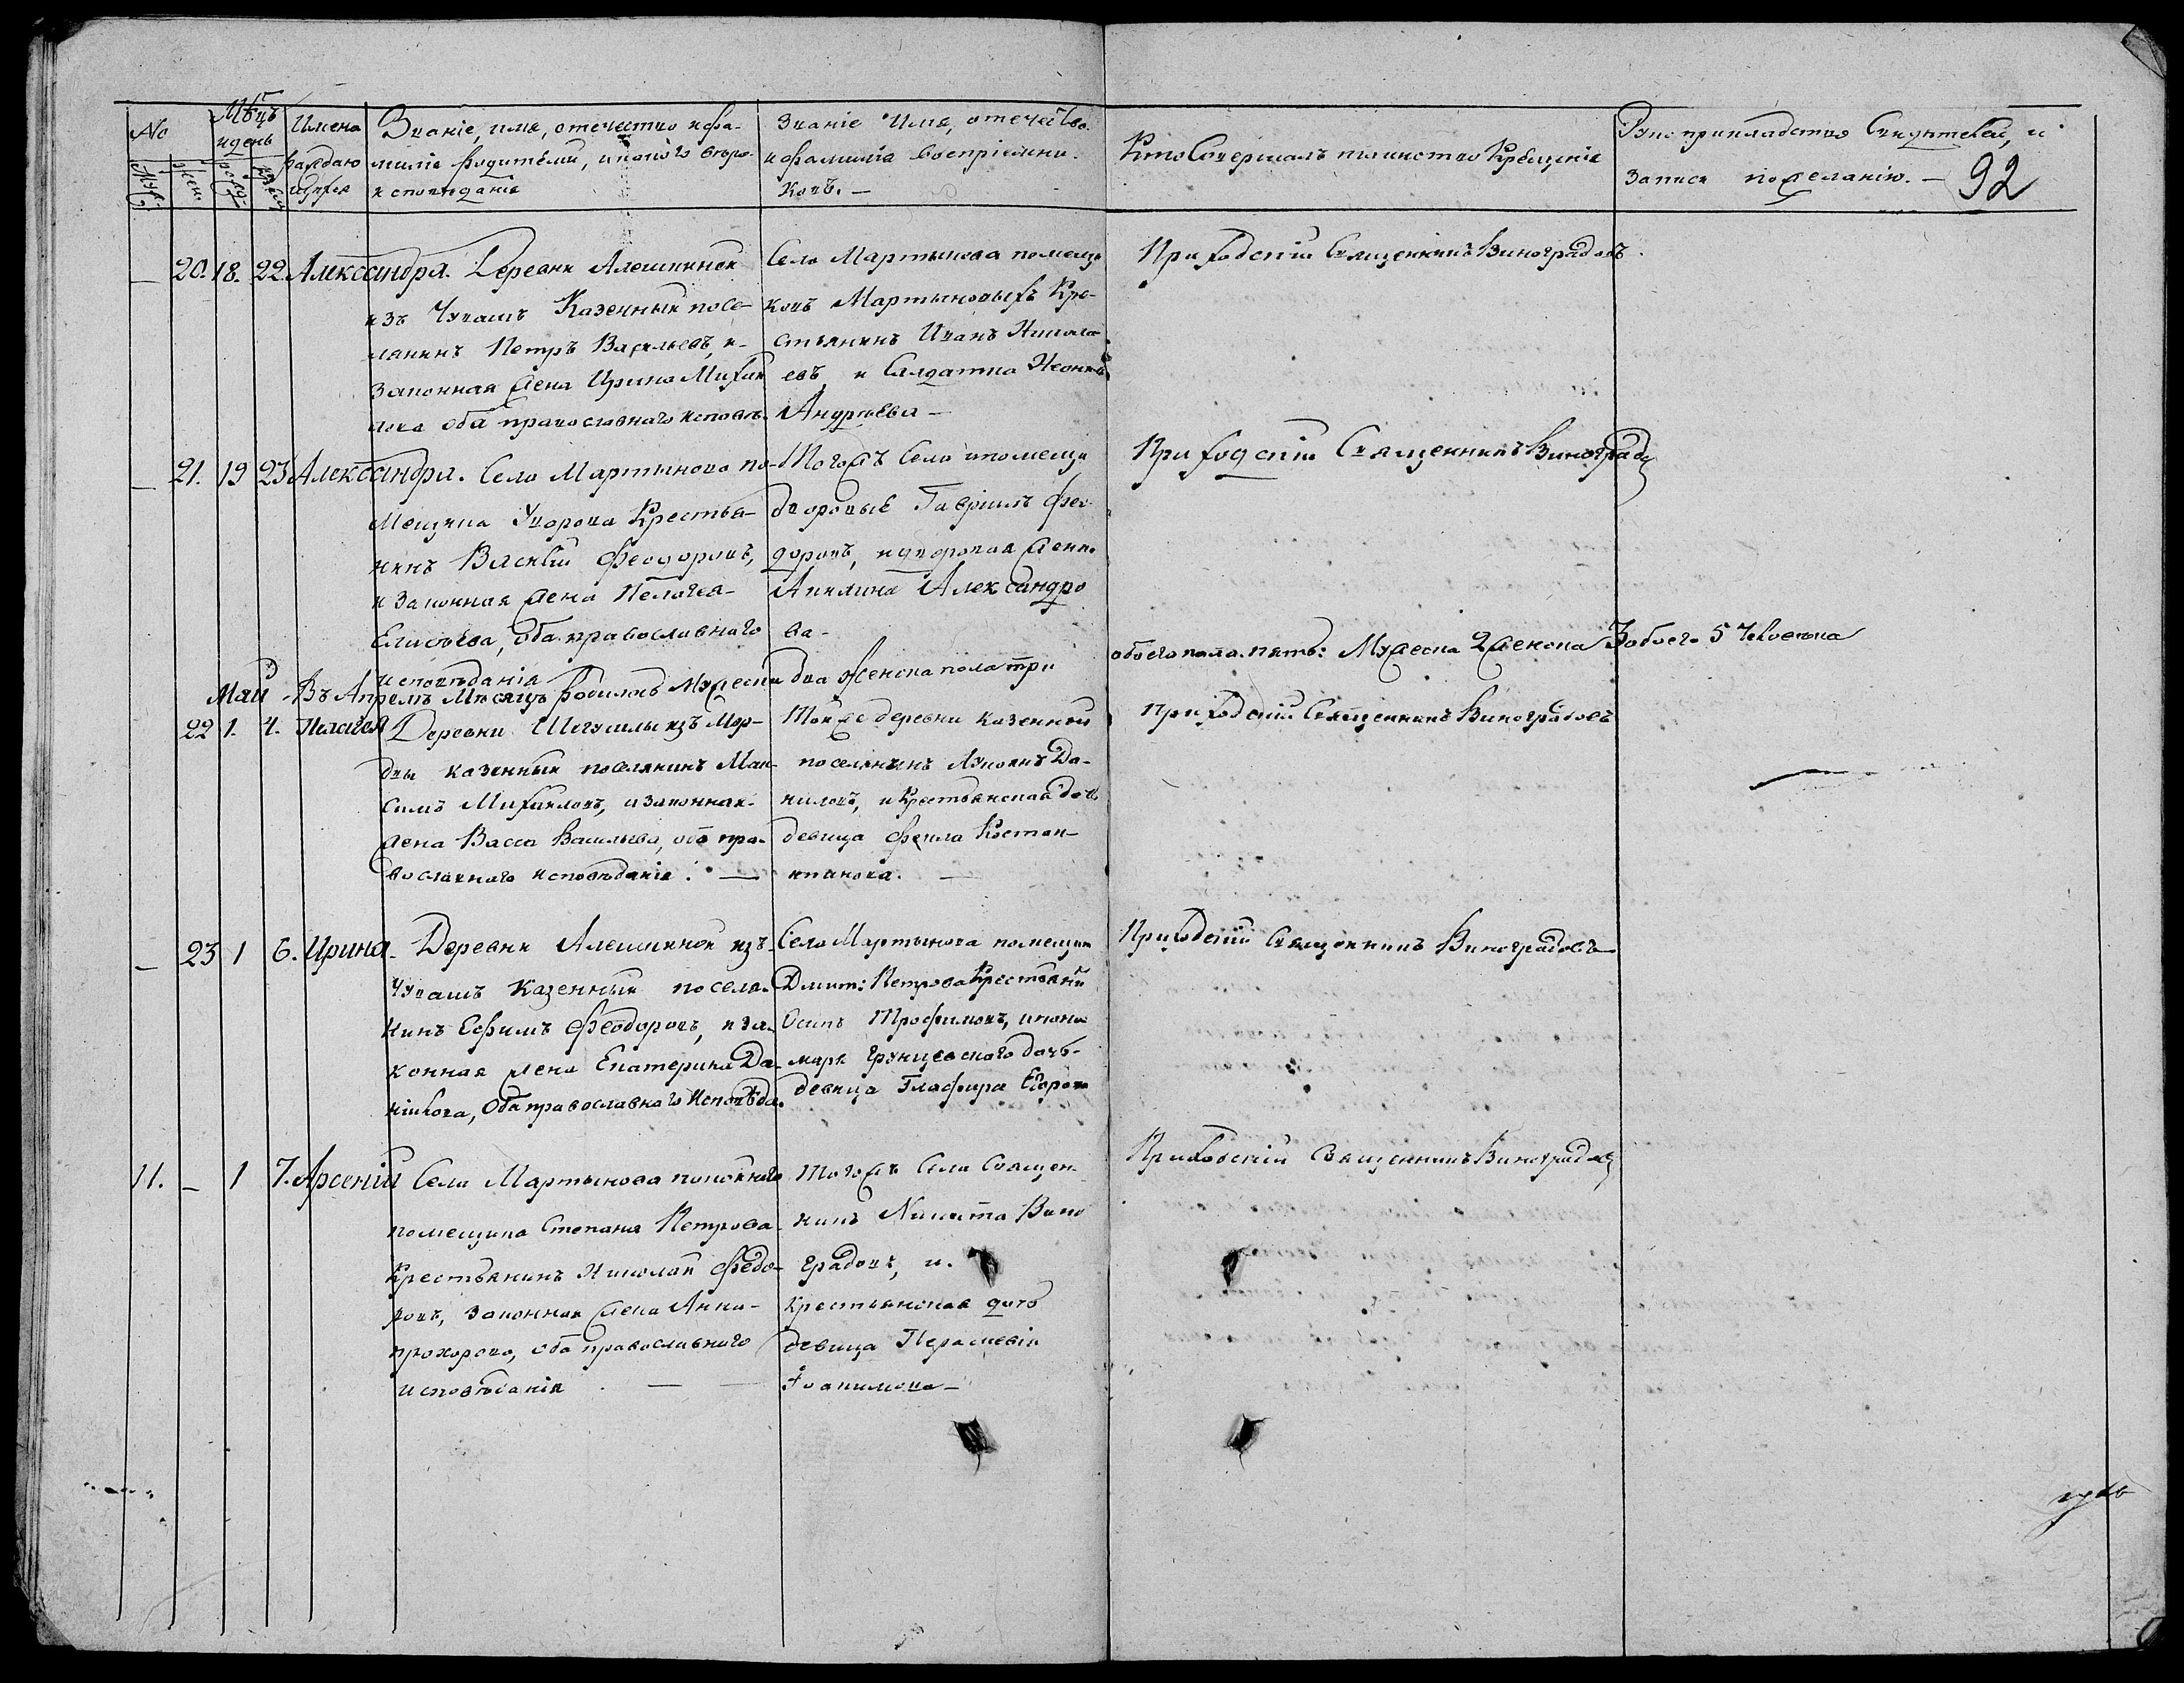 No
Муж:
Жен.
Мѣсцъ и день
рожд-
крещ
Имена раждаю щихся
Званіе, имя, отечество и фа-
миліе Родителей, и какого вѣро-
исповѣданія
Званіе Имя, отечество.
и фамиліе Воспріемни-
ковъ. —
Кто Совершалъ таинство Крещенія
Рукоприкладство Свидѣтелей, и
записи по желанію. —
92
— 20. 18. 22. Александра. Деревни Алешкиной
изъ Чувашъ Казенный посе-
лянинъ Петръ Васильевъ, и-
законная жена Ирина Михаи
лова оба православнаго исповѣ.
Село Мартынова помещи
ковъ Мартыновыхъ Кре-
стьянинъ Иванъ Никола
евъ, и Салдатка
Андреева —
Приходскій Священникъ Виноградовъ.
— 21. 19 23 Александра. Село Мартынова по-
мещика Крестья-
нинъ Василій Феодоровъ,
и законная жена Пелагея-
Елисѣева, оба православнаго
исповѣданія
Тогожъ Села помещи
дворовые Гавріилъ Фео
доровъ, и дворовая женка
Акилина Александро
ва-
Приходскій Священникъ Виноградо
Май - Въ Апрелѣ Мѣсяцѣ родилось Мужеска два Женска пола три
обоего пола пять: Мужеска 2 женска 3 обоего 5 человѣка
22 1. 4. Пелагея Деревни Шегушлы изъ Мор-
двы казенный поселянинъ Мак-
симъ Михаиловъ, и законная-
жена Васса Васильева, оба пра-
вославнаго исповѣданія. —
Той же деревни казенный
поселянинъ Лукоянъ Да-
ниловъ, и Крестьянская дочь
девица Фекла Костан-
тинова. —
Приходскій Священникъ Виноградовъ
— 23 1 6. Ирина - Деревни Алешкиной изъ-
Чувашъ Казенный поселя-
нинъ Ефимъ Феодоровъ, и за-
конная жена Екатерина Да-
нилова, Оба православнаго Исповѣда.
Села Мартынова помещика
Дмит: Петрова Крестьянинъ
Осипъ Трофимовъ, и поно-
маря дочь-
девица Глафира Егорова
Приходскій Священникъ Виноградовъ
11. — 1 7. Арсеній Села Мартынова покойнаго
помещика Степана Петрова-
Крестьянинъ Николай Федо-
ровъ, законная жена Анна-
прохорова, оба православнаго
исповѣданія . — —
Тогожъ Села Священ-
никъ Никита Вино
градовъ, и.
крестьянская дочь
девица Параскевія
Іоакимова-
Приходскій Священникъ Виноградовъ